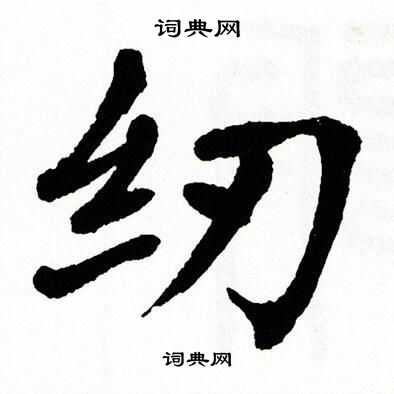 词典网
纫
词典网